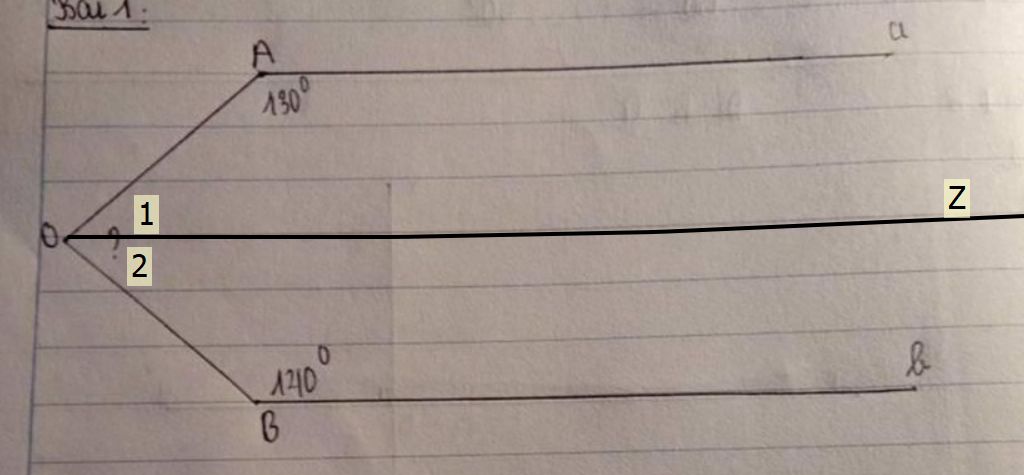 Bài 1:
A
a
130°
1
Z
O
?
2
140°
b
B